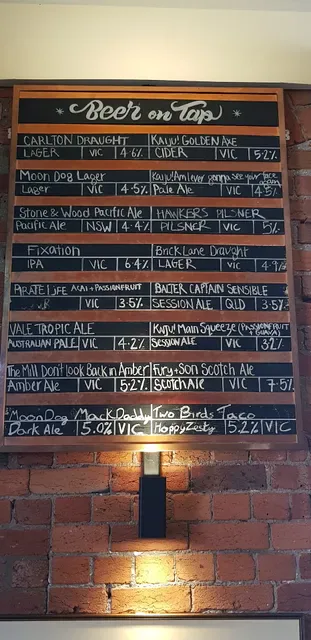 * Beer on Tap *
CARLTON DRAUGHT KAIJU! GOLDEN AXE
LAGER VIC 4.6% CIDER VIC 5.2%
Moon Dog Lager Kaiju! Am I ever gonna see your face again
Lager VIC 4.5% Pale Ale VIC 4.5%
Stone & Wood Pacific Ale HAWKERS PILSNER
Pacific Ale NSW 4.4% PILSNER VIC 5%
Fixation Brick Lane Draught
IPA VIC 6.4% LAGER VIC 4.9%
PIRATE LIFE ACAI + PASSIONFRUIT BALTER CAPTAIN SENSIBLE
VIC 3.5% SESSION ALE QLD 3.5%
VALE TROPIC ALE Kaiju! Main Squeeze (PASSIONFRUIT + GUAVA)
AUSTRALIAN PALE VIC 4.2% SESSION ALE VIC 3.2%
The Mill Don't look Back in Amber Fury + Son Scotch Ale
Amber Ale VIC 5.2% Scotch Ale VIC 7.5%
Moon Dog Mack Daddy Two Birds Taco
Dark Ale 5.0% VIC Hoppy Zesty 5.2% VIC